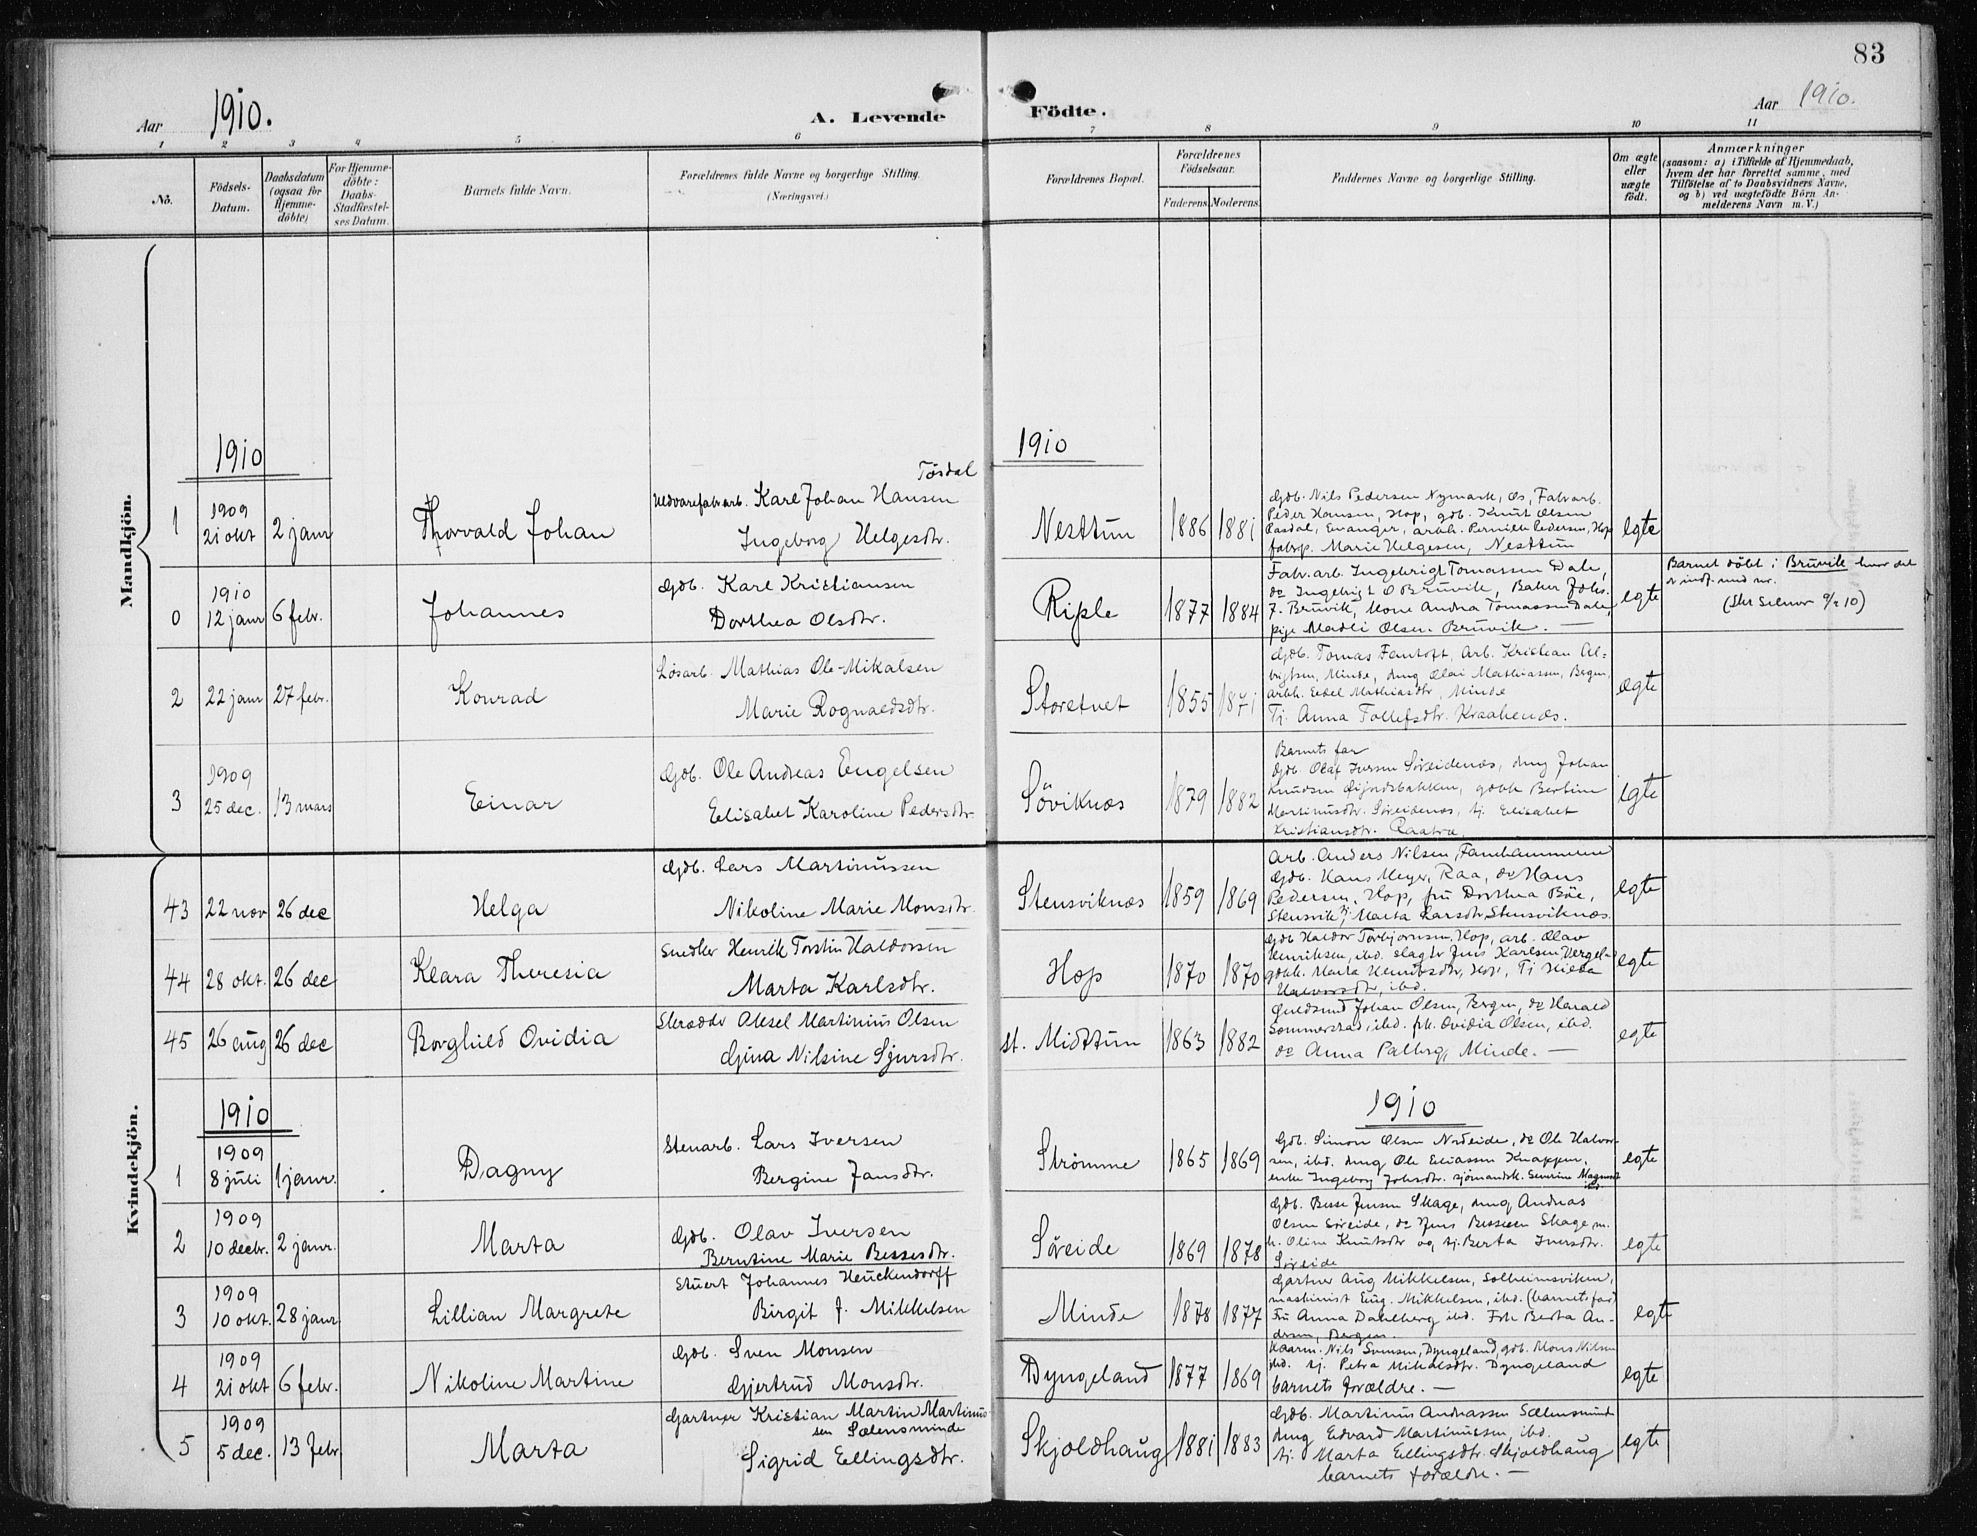 83
Aar 1910.
A. Levende Födte.
Aar 1910.
1 2 3 4 5 6 7 8 9 10 11
No.
Födsels-
Datum.
Daabsdatum
(ogsaa for
Hjemme-
döbte)
For Hjemme-
döbte:
Daabs-
Stadfæstel-
ses Datum.
Barnets fulde Navn.
Forældrenes fulde Navne og borgerlige Stilling.
(Næringsvei.)
Forældrenes Bopæl.
Forældrenes
Födselsaar.
Faderens. Moderens.
Faddernes Navne og borgerlige Stilling.
Om ægte
eller
uægte
födt.
Anmærkninger
(saasom: a) i Tilfælde af Hjemmedaab,
hvem der har forrettet samme, med
Tilföielse af to Daabsvidners Navne,
og b) ved uægtefödte Börn An-
melderens Navn m. V.)
Mandkjön.
1910
1910
1
1909
21 okt
2 janr
Thorvald Johan
Tösdal
Uldvarefabrarb. Karl Johan Hansen
Ingeborg Helgesdtr.
Nesttun
1886
1881
Gdb. Nils Pedersen Nymark, Os, Fabrarb.
Peder Hansen, Hop, gdb. Knut Olsen
Aasdal, Evanger, arbh. Pernille Pedersen, Hop
fabrp. Marie Helgesen, Nesttun
egte
0
1910
12 janr
6 febr.
Johannes
Gdb. Karl Kristiansen
Dorthea Olsdtr.
Riple
1877
1884
Fabr.arb. Ingebrigt Tomassen Dale,
do Ingebrigt O Bruvik, Baker Johs.
J. Bruvik, Kone Andrea Tomassen Dale,
pige Madli Olsen Bruvik. —
egte
Barnet döbt i Bruvik hvor det
er indf. med nr.
2
22 janr
27 febr.
Konrad
Løsarb. Mathias Ole-Mikalsen
Marie Rognaldsdtr.
Storetvet
1855
1871
Gdb. Tomas Fantoft, Arb. Kristian Al-
brigtsen, Minde, ung Olai Mathiassen, Bergen,
arbh. Eidel Mathiasdtr, Minde
Tj. Anna Tollefsdtr. Kraakenæs.
ægte
3
1909
25 dec.
13 mars
Einar
Gdb. Ole Andreas Engelsen
Elisabet Karoline Pedersdtr.
Söviknæs
1879
1882
Barnets far
Gdb. Olaf Iversen Söreidenæs, ung Johan
Knudsen, gdbk Bertine
Martinusdtr. Söreidenæs, tj. Elisabet
Kristiansdtr. Raatræ
egte
Kvindekjön.
43
22 nov
26 dec
Helga
Gdb. Lars Martinussen
Nikoline Marie Monsdtr.
Stensviknæs
1859
1869
Arb. Anders Nilsen, Fanehammeren
Gdb. Hans Meyer, Raa, do Hans
Pedersen, Hop, fru Dorthea Böe,
Stensvik, Tj. Marta Larsdtr. Stensviknæs.
egte
44
28 okt.
26 dec
Klara Theresia
Snedker Henrik Torstin Haldorsen
Marta Karlsdtr.
Hop
1870
1870
Gdb Haldor Torbjørnsen, Hop, arb. Olav
Henriksen, ibd. slagtr Jens Karlsen,
gdbk. Marta Henriksdtr, Hop, Tj Hilda
Halvorsdtr, ibd.
egte
45
26 aug
26 dec
Borghild Ovidia
Skrædder Aksel Martinius Olsen
Gina Nilsine Sjursdtr.
st. Midttun
1863
1882
Guldsmed Johan Olsen, Bergen, do Harald
Sommerstad, ibd. frk. Ovidia Olsen, ibd.
do Anna Palberg, Minde. —
egte
1910
1910
1
1909
8 juli
1 janr.
Dagny
Stenarb. Lars Iversen
Bergine Jansdtr.
Strømme
1865
1869
Gdb. Simon Olsen Nordeide, do Ole Halvor-
sen, ibd. ung Ole Eliassen Knappen,
enke Ingeborg Johsdtr. sjömandsk. Severine Magnus
ibd.
egte
2
1909
10 decbr.
2 janr.
Marta
Gdb. Olav Iversen
Berntine Marie Bessesdtr.
Søreide
1869
1878
Gdb. Besse Jensen Skage, ung Andreas
Olsen Søreide, do Jens Bessesen Skage, m.
k. Oline Knutsdtr og tj. Berta Iversdtr.
Søreide
egte
3
1909
10 okt.
28 janr
Lillian Margrete
Stuert Johannes Heuckendorff
Birgit J. Mikkelsen
Minde
1878
1877
Gartner Aug Mikkelsen, Solheimsviken,
maskinist Eug. Mikkelsen, ibd. (barnets far)
Fru Anna Dahlberg ibd. Frk Berta An-
dersen, Bergen.
egte
4
1909
21 okt
6 febr.
Nikoline Martine
Gdb. Sven Monsen
Gjertrud Monsdtr.
Dyngeland
1877
1869
Kaarm. Nils Svensen, Dyngeland, gdb. Mons Nilsen
ibd. tj. Petra Mikalsdtr. Dyngeland
barnets forældre. —
egte
5
1909
5 dec.
13 febr
Marta
Gartner Kristian Martin Martinus-
sen Sælensminde
Sigrid Ellingsdtr.
Skjoldhaug
1881
1883
Gdb. Martinus Andreassen Sælensmind
ung Edvard Martinussen, ibd.
tj. Marta Ellingsdtr. Skjoldhaug
barnets forældre. —
egte